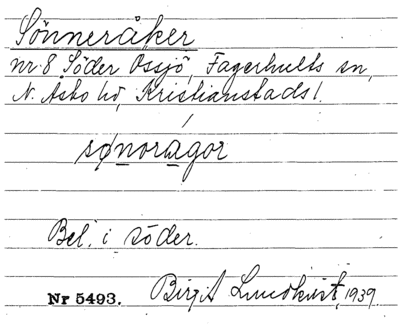 Sönneråker
nr 8 Söder Ossjö, Fagerhults sn,
N. Åsbo hd, Kristianstads l.
sønoragor
Bel. i söder.
Nr 5493. Birgit Lundkvist, 1939.